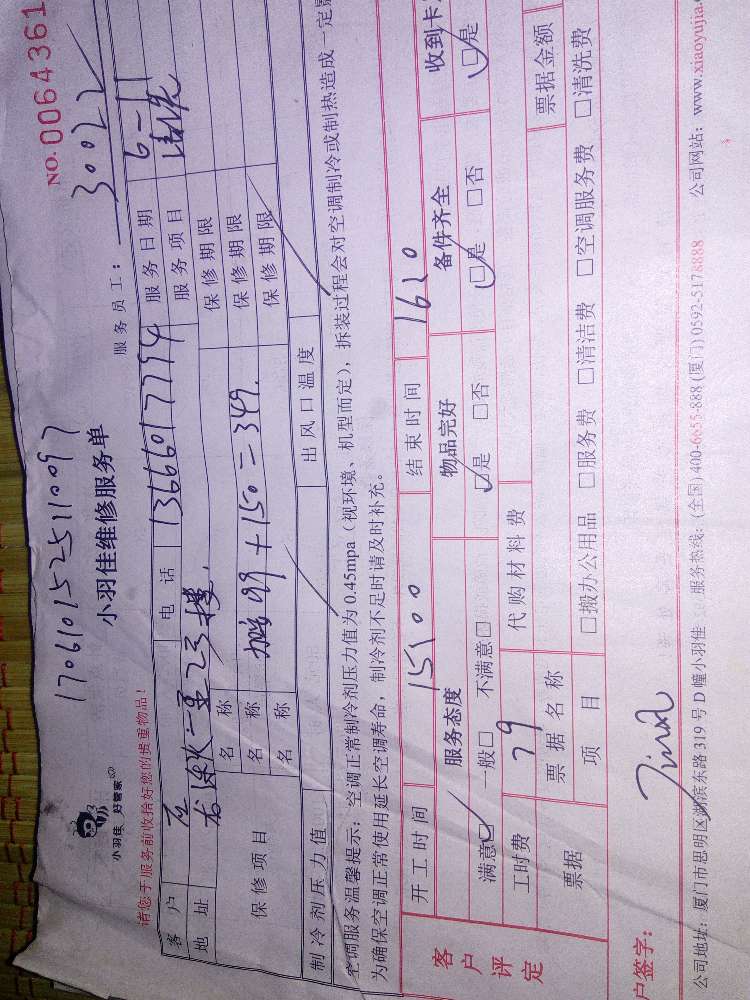 NO. 0064361
17061015251110097
小羽佳 好管家
小羽佳维修服务单
服务员工： 30022
请您于服务前收拾好您的贵重物品！
客户 电话 13666017794 服务日期 6-11
地址 服务项目 清洗
保修项目 名称 保修期限
名称 99+150=349. 保修期限
名称 保修期限
制冷剂压力值 出风口温度
空调服务温馨提示：空调正常制冷剂压力值为 0.45mpa（视环境、机型而定），拆装过程会对空调制冷或制热造成一定影
为确保空调正常使用延长空调寿命，制冷剂不足时请及时补充。
客户评定
开工时间 1500 结束时间 1620
服务态度 物品完好 备件齐全 收到卡
满意□ 一般□ 不满意□ □是 □否 □是 □否 □是
工时费 79 代购材料费
票据 票据名称 票据金额
项目 □搬办公用品 □服务费 □清洁费 □空调服务费 □清洗费
户签字：
公司地址：厦门市思明区湖滨东路 319 号 D 幢小羽佳 服务热线：(全国)400-6655-888 (厦门)0592-5178888 公司网站：www.xiaoyujia.